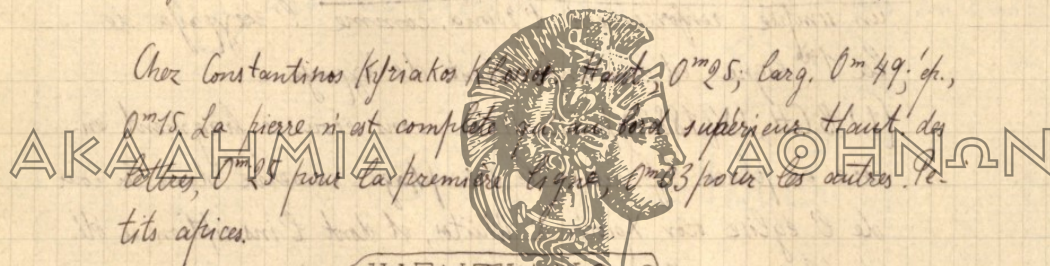 Chez Constantinos Kyriakos Haut., 0ᵐ25; larg. 0ᵐ49; ép.,
0ᵐ15. La pierre n'est complète qu'au bord supérieur. Haut. des
lettres, 0ᵐ25 pour la première ligne, 0ᵐ03 pour les autres. Pe-
tits apices.
ΑΚΑΔΗΜΙΑ ΑΘΗΝΩΝ